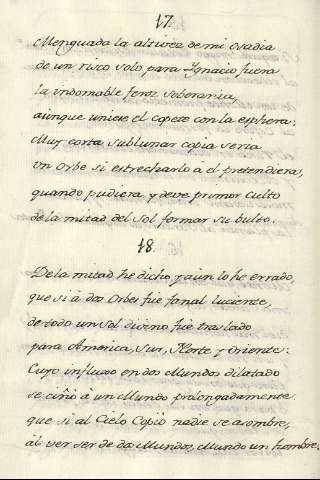 17.
Menguada la altivez de mi osadia
de un risco solo para Ygnacio fuera
la indomable feroz soberania,
aunque uniese el copete con la esphera:
Muy corta sublunar copia seria
un Orbe si estrecharlo a el pretendiera,
quando pudiera, y deve primor culto
de la mitad del Sol formar su bulto.
18.
De la mitad he dicho, y aun lo he errado,
que si à dos Orbes fue fanal luciente,
de todo un Sol divino fue traslado
para America, Sur, Norte y Oriente:
Cuyo influxo en dos Mundos dilatado
se ciñò à un Mundo prolongadamente
que si al Cielo Copiò nadie se asombre,
al ver ser de dos Mundos, Mundo un hombre.